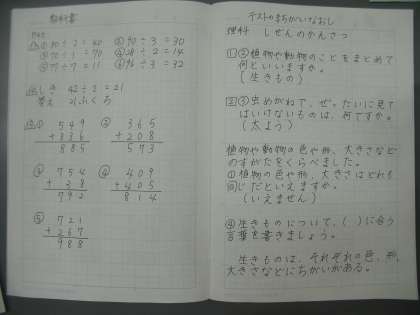 教科書
80÷2=40
90÷3=30
70÷1=70
28÷2=14
77÷7=11
96÷3=32
しき 42÷2=21
答え 21ふくろ
① 549
+336
885
② 365
+208
573
③ 754
+ 38
792
④ 409
+405
814
⑤ 721
+267
988
テストのまちがいなおし
理科 しぜんのかんさつ
①② 植物や動物のことをまとめて
何といいますか。
(生きもの)
②③ 虫めがねで、ぜったいに見て
はいけないものは、何ですか。
(太よう)
植物や動物の色や形、大きさなど
のすがたをくらべました。
① 植物の色や形、大きさはどれも
同じだといえますか。
(いえません)
④ 生きものについて、( )に合う
言葉を書きましょう。
生きものは、それぞれの色、形、
大きさなどにちがいがある。